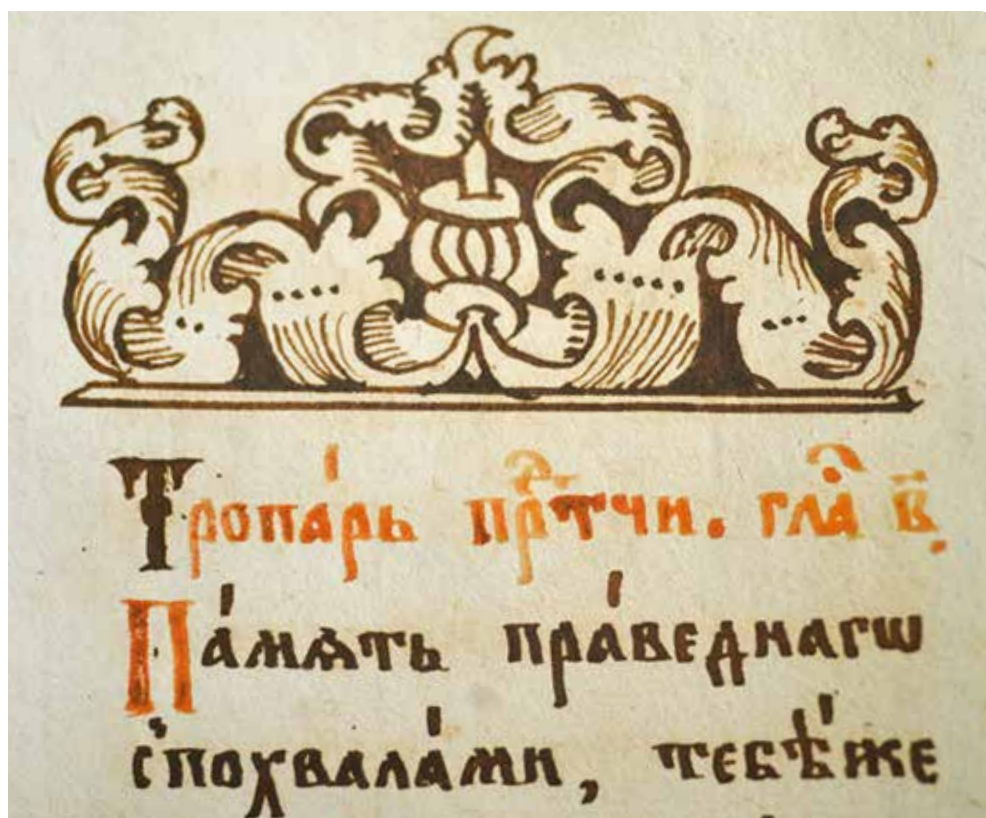 Тропа́рь прⷣте́чи. гла́ в҃.
Па́мѧть пра́веднагѡ
с̾похвала́ми, тебѣ́же